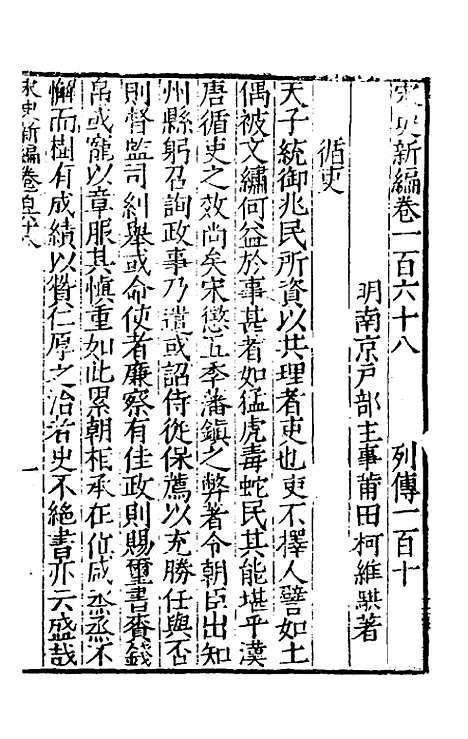 宋史新編卷一百六十八　列傳一百十
明南京戶部主事莆田柯維騏著
循吏
天子統御兆民所資以共理者吏也吏不擇人譬如土
偶被文繡何益於事甚者如猛虎毒蛇民其能堪乎漢
唐循吏之效尚矣宋懲五季藩鎮之弊著令朝臣出知
州縣躬召詢政事乃遣或詔侍從保薦以充勝任與否
則督監司糾舉或命使者廉察有佳政則賜璽書賚錢
帛或寵以章服其慎重如此累朝相承在位咸烝烝不
懈而樹有成績以贊仁厚之治若史不絕書亦云盛哉
宋史新編卷百六十八
一